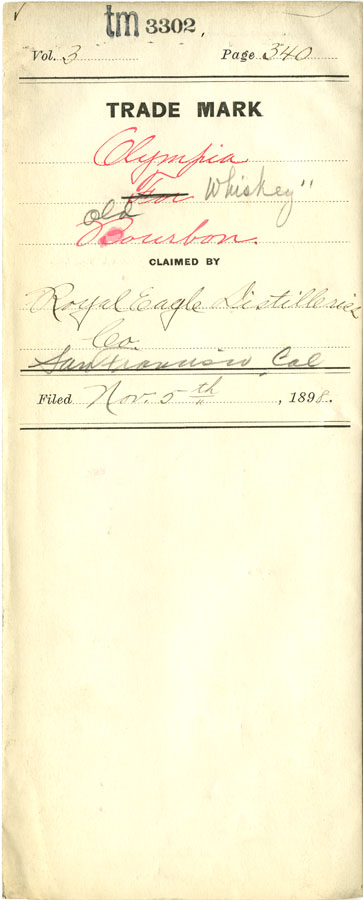 tm 3302,
Vol. 3 Page 340
TRADE MARK
Olympia
For Whiskey"
old
Bourbon.
CLAIMED BY
Royal Eagle Distilleries
Co.
San Francisco, Cal
Filed Nov. 5th, 1898.